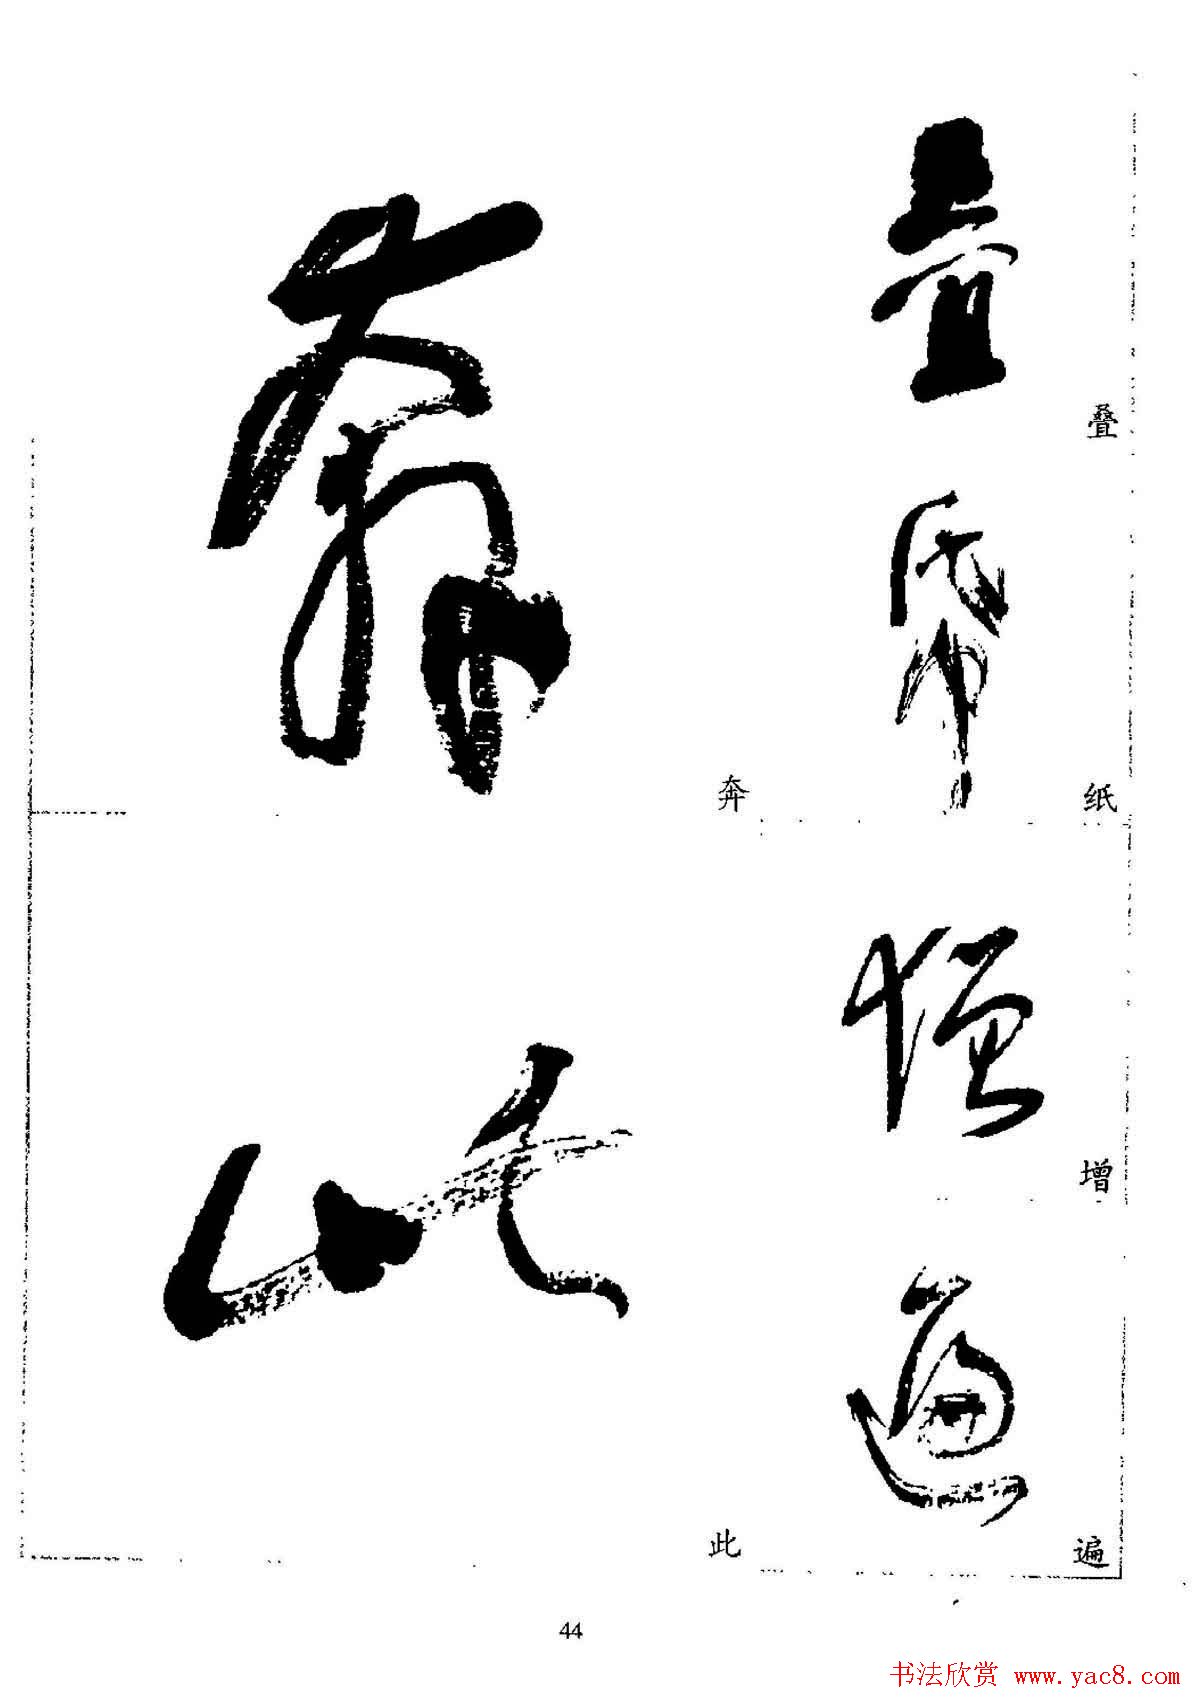 叠
纸
奔
增
遍
此
44
书法欣赏 www.yac8.com